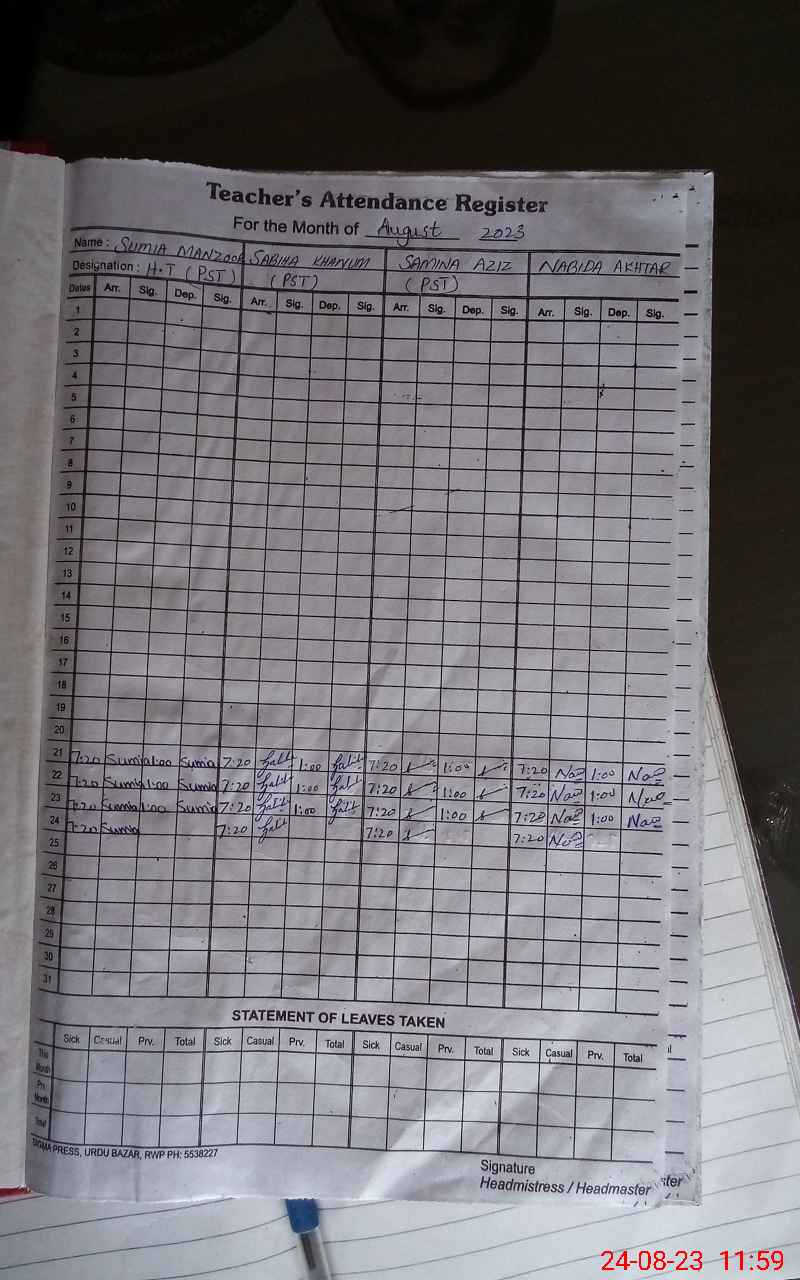 Teacher's Attendance Register
For the Month of August 2023
Name : SUMIA MANZOOR SABIHA KHANUM SAMINA AZIZ NABIDA AKHTAR
Designation : H.T (PST) (PST) (PST)
Dates Arr. Sig. Dep. Sig. Arr. Sig. Dep. Sig. Arr. Sig. Dep. Sig. Arr. Sig. Dep. Sig.
1
2
3
4
5
6
7
8
9
10
11
12
13
14
15
16
17
18
19
20
21 7:20 Sumia 1:00 Sumia 7:20 1:00 7:20 1:00 7:20 1:00
22 7:20 Sumia 1:00 Sumia 7:20 1:00 7:20 1:00 7:20 1:00
23 7:20 Sumia 1:00 Sumia 7:20 1:00 7:20 1:00 7:20 1:00
24 7:20 Sumia 7:20 7:20 7:20
25
26
27
28
29
30
31
STATEMENT OF LEAVES TAKEN
Sick Casual Prv. Total Sick Casual Prv. Total Sick Casual Prv. Total Sick Casual Prv. Total
This Month
Prv. Month
Total
SIGMA PRESS, URDU BAZAR, RWP PH: 5538227
Signature
Headmistress / Headmaster
ster
24-08-23 11:59